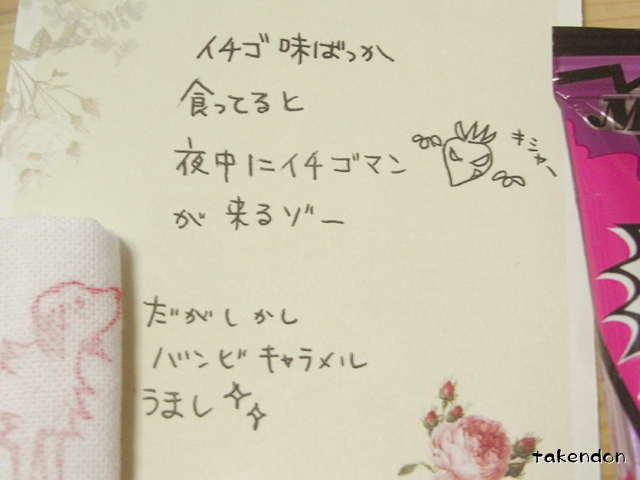 イチゴ味ばっか
食ってると
夜中にイチゴマン
キシャー
が来るゾー
だがしかし
バンビキャラメル
うまし
takendon